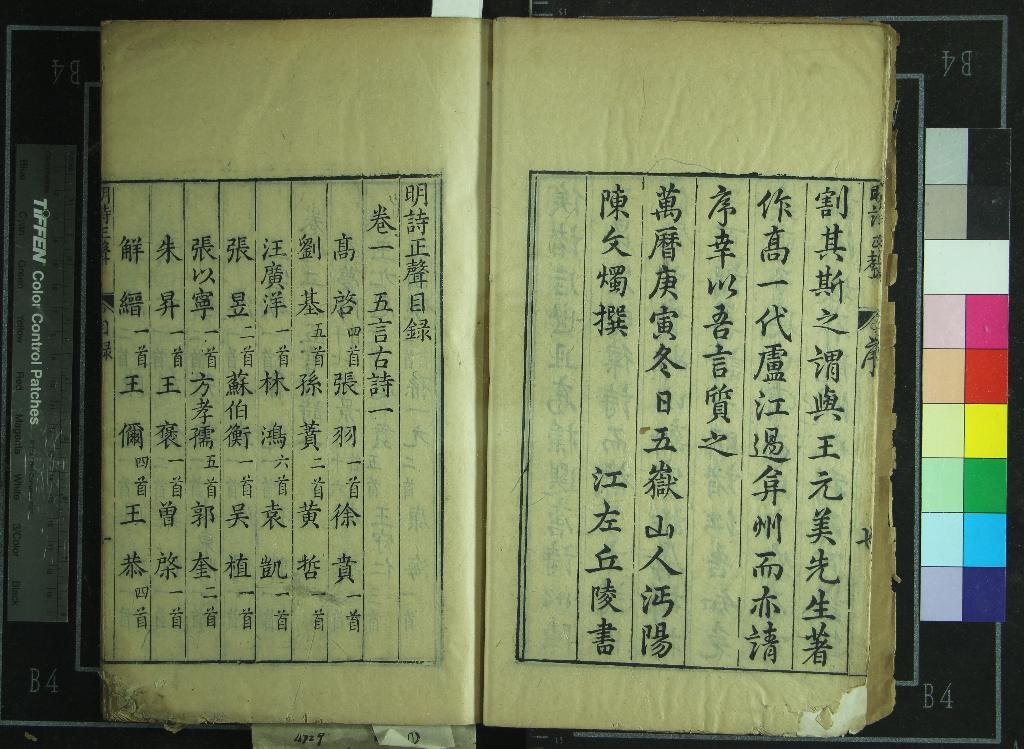 割其斯之謂與王元美先生著
作高一代廬江過弇州而亦請
序幸以吾言質之
萬曆庚寅冬日五嶽山人沔陽
陳文燭撰 江左丘陵書
明詩正聲目録
卷一 五言古詩一
高啓四首 張羽一首 徐賁一首
劉基五首 孫蕡二首 黄哲一首
汪廣洋一首 林鴻六首 袁凱一首
張昱二首 蘇伯衡一首 吴植一首
張以寧一首 方孝孺五首 郭奎二首
朱昇一首 王褒一首 曾棨一首
解縉一首 王偁四首 王恭四首
TIFFEN Color Control Patches
B4
B4
B4
B4
4729